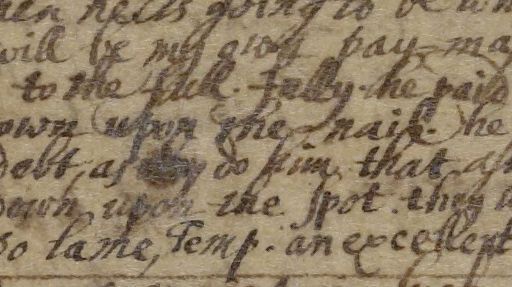 hells going to be
will be my own pay-ma
to the full. fully. he paid
own upon the nail. he
Debt, as they do him, that
Down upon the spot. they
so lame, Temp. an excellent